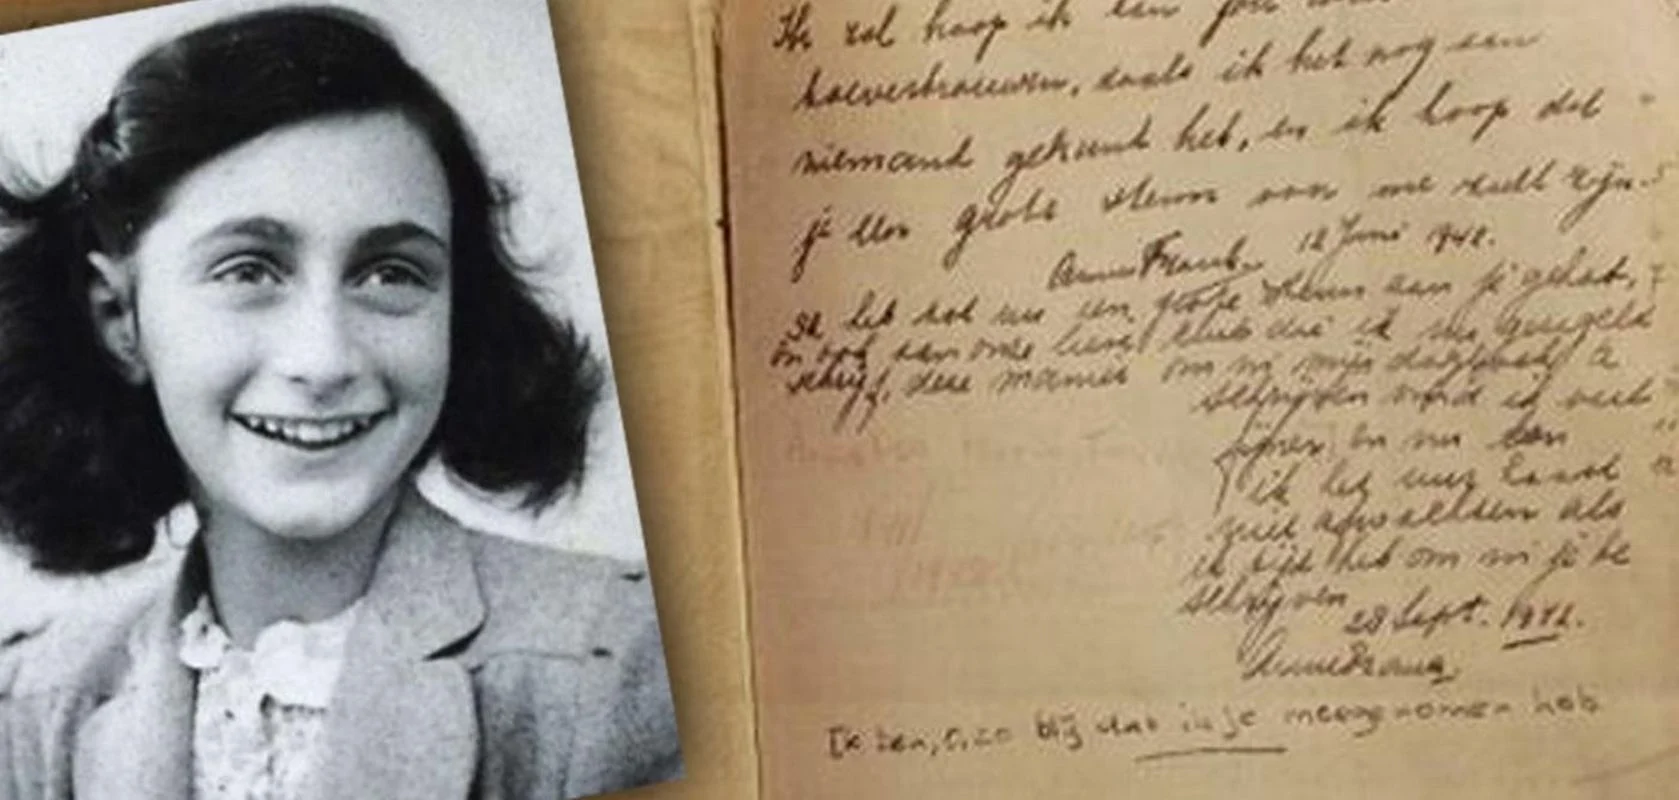 Ik zal hoop ik aan jou
toevertrouwen, zoals ik het nog aan
niemand gekund heb, en ik hoop dat
je een grote steun van me zult zijn.
Anne Frank. 12 Juni 1942.
Ik heb tot nu een grote steun aan je gehad,
en ook aan onze lieve club die ik nu geregeld
schrijf, deze manier om in mijn dagboek te
schrijven vind ik veel
fijner en nu kan
ik het uur haast
niet afwachten als
ik tijd heb om in je te
schrijven
28 Sept. 1942.
Anne Frank.
Ik ben, o, zo blij dat ik je meegenomen heb